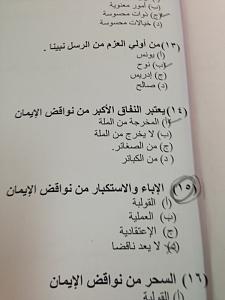 ب) أمور معنوية
ج) ذوات محسوسة
د) خيالات محسوسة
(١٣) من أولي العزم من الرسل نبينا .
أ) يونس
ب) نوح
ج) إدريس
د) صالح
(١٤) يعتبر النفاق الأكبر من نواقض الإيمان
أ) المخرجة من الملة
ب) لا يخرج من الملة
ج) من الصغائر.
د) من الكبائر
(١٥) الإباء والاستكبار من نواقض الإيمان
أ) القولية
ب) العملية
ج) الإعتقادية
د) لا يعد ناقضا
(١٦) السحر من نواقض الإيمان
أ) القولية